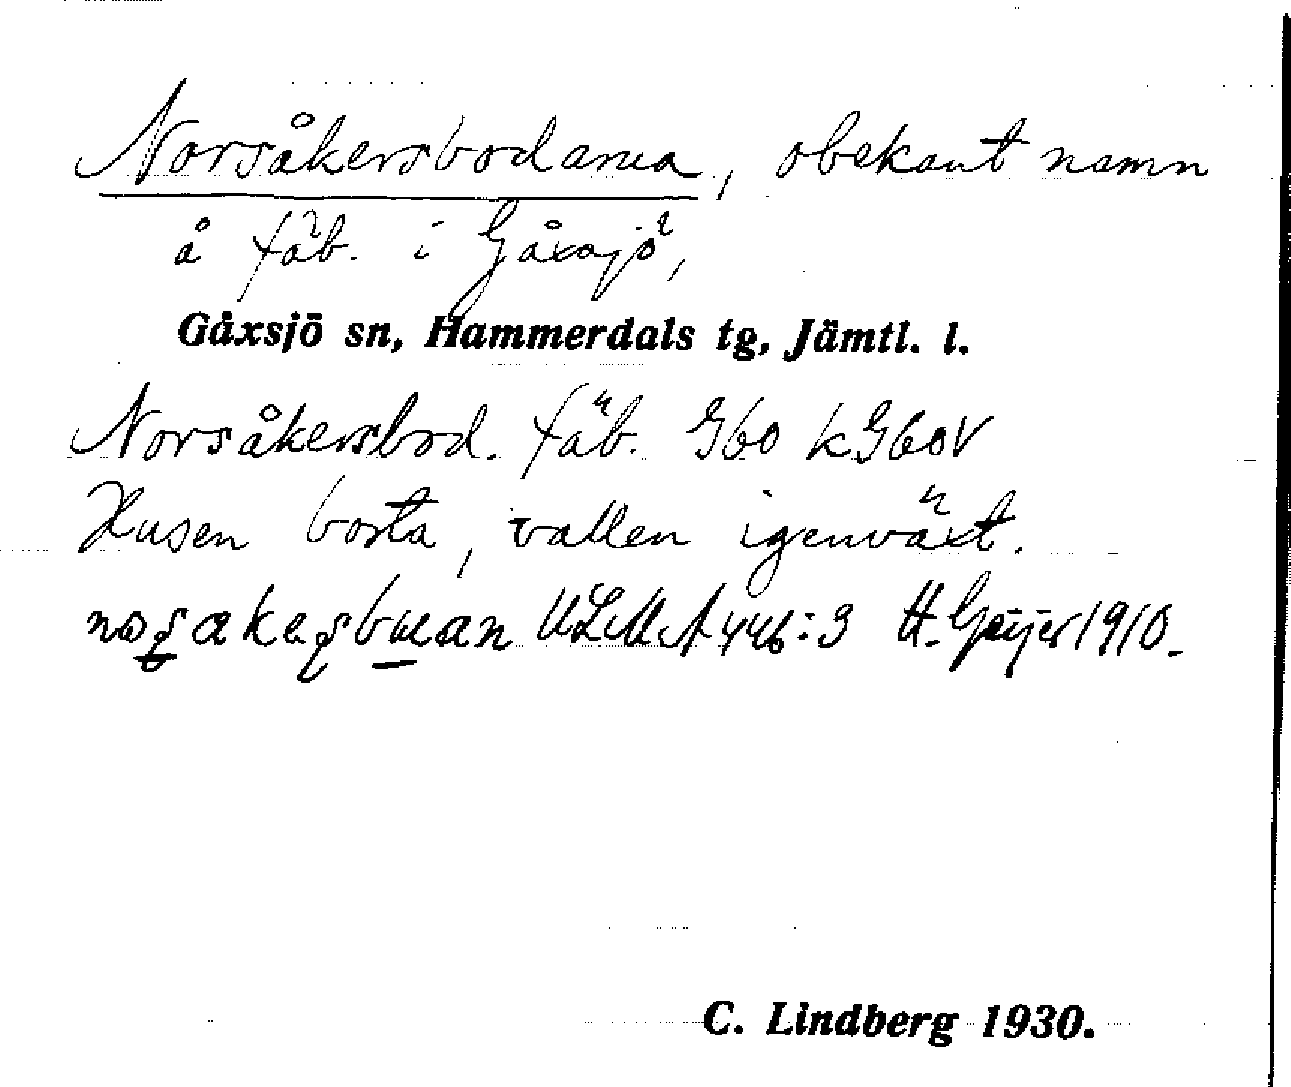 Norsåkersbodarna, obekant namn
å fäb. i Gåxsjö,
Gåxsjö sn, Hammerdals tg, Jämtl. l.
Norsåkersbod. fäb. Gbo kGboV
Husen borta, vallen igenväxt.
ULMA 446:3 H. Geijer 1910.
C. Lindberg 1930.